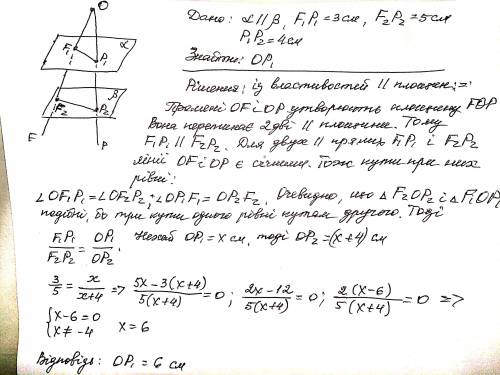 O
Дано: α∥β, F₁P₁=3см, F₂P₂=5см
P₁P₂=4см
Знайти: OP₁
F₁ P₁ α
F₂ P₂ β
F P
Рішення: із властивостей ∥ площин:
Промені OF і OP утворюють площину FOP
Вона перетинає 2 дві ∥ площини. Тому
F₁P₁∥F₂P₂. Для двух ∥ прямих F₁P₁ і F₂P₂
лінії OF і OP є січними. Тож кути при них
рівні:
∠OF₁P₁=∠OF₂P₂; ∠OP₁F₁=OP₂F₂. Очевидно, що △F₂OP₂ і △F₁OP₁
подібні, бо три кути одного рівні кутам другого. Тоді
F₁P₁/F₂P₂ = OP₁/OP₂. Нехай OP₁=x см, тоді OP₂=(x+4) см
3/5 = x/(x+4) => (5x-3(x+4))/(5(x+4)) = 0; (2x-12)/(5(x+4)) = 0; (2(x-6))/(5(x+4)) = 0 =>
{x-6=0
x≠-4 x=6
Відповідь: OP₁=6 см